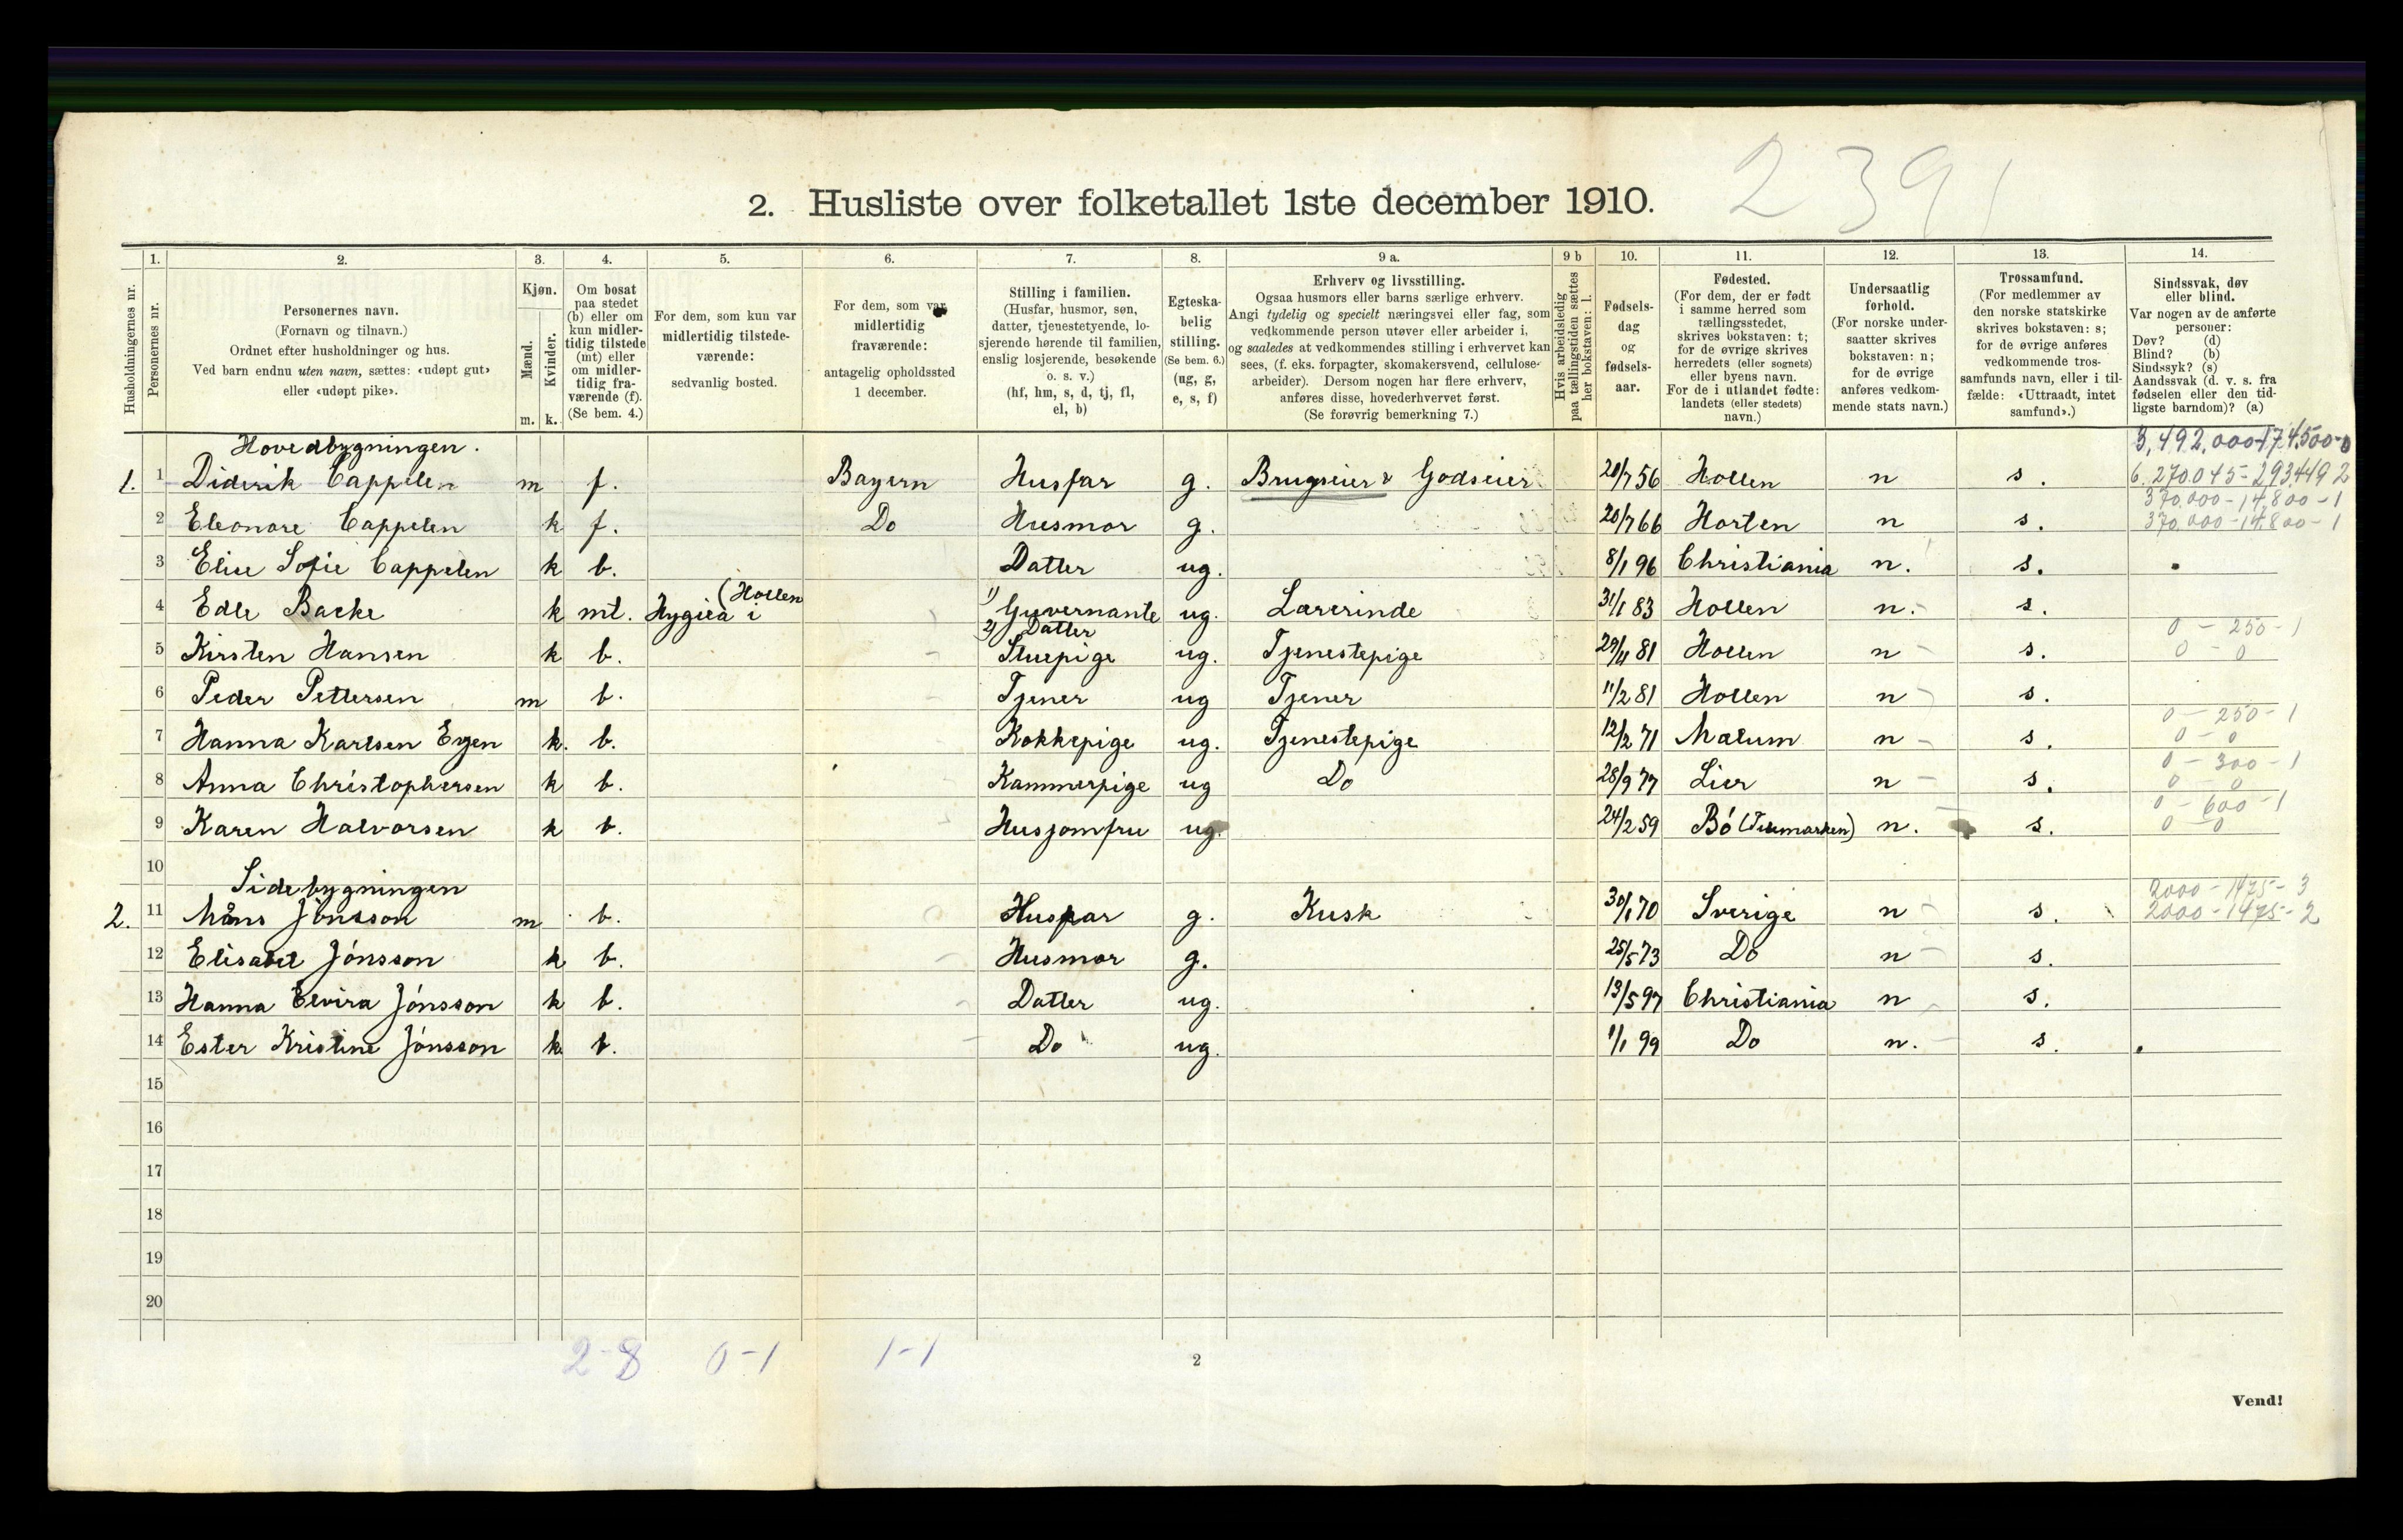 2391
2. Husliste over folketallet 1ste december 1910.
Husholdningernes nr.
1.
Personernes nr.
2.
Personernes navn.
(Fornavn og tilnavn.)
Ordnet efter husholdninger og hus.
Ved barn endnu uten navn, sættes: «udøpt gut»
eller «udøpt pike».
3.
Kjøn.
Mænd.
Kvinder.
m. k.
4.
Om bosat
paa stedet
(b) eller om
kun midler-
tidig tilstede
(mt) eller
om midler-
tidig fra-
værende (f).
(Se bem. 4.)
5.
For dem, som kun var
midlertidig tilstede-
værende:
sedvanlig bosted.
6.
For dem, som var
midlertidig
fraværende:
antagelig opholdssted
1 december.
7.
Stilling i familien.
(Husfar, husmor, søn,
datter, tjenestetyende, lo-
sjerende hørende til familien,
enslig losjerende, besøkende
o. s. v.)
(hf, hm, s, d, tj, fl,
el, b)
8.
Egteska-
belig
stilling.
(Se bem. 6.)
(ug, g,
e, s, f)
9 a.
Erhverv og livsstilling.
Ogsaa husmors eller barns særlige erhverv.
Angi tydelig og specielt næringsvei eller fag, som
vedkommende person utøver eller arbeider i,
og saaledes at vedkommendes stilling i erhvervet kan
sees, (f. eks. forpagter, skomakersvend, cellulose-
arbeider). Dersom nogen har flere erhverv,
anføres disse, hovederhvervet først.
(Se forøvrig bemerkning 7.)
9 b
Hvis arbeidsledig
paa tællingstiden sættes
her bokstaven: l.
10.
Fødsels-
dag
og
fødsels-
aar.
11.
Fødested.
(For dem, der er født
i samme herred som
tællingsstedet,
skrives bokstaven: t;
for de øvrige skrives
herredets (eller sognets)
eller byens navn.
For de i utlandet fødte:
landets (eller stedets)
navn.)
12.
Undersaatlig
forhold.
(For norske under-
saatter skrives
bokstaven: n;
for de øvrige
anføres vedkom-
mende stats navn.)
13.
Trossamfund.
(For medlemmer av
den norske statskirke
skrives bokstaven: s;
for de øvrige anføres
vedkommende tros-
samfunds navn, eller i til-
fælde: «Uttraadt, intet
samfund».)
14.
Sindssvak, døv
eller blind.
Var nogen av de anførte
personer:
Døv? (d)
Blind? (b)
Sindssyk? (s)
Aandssvak (d. v. s. fra
fødselen eller den tid-
ligste barndom)? (a)
Hovedbygningen. 3,492,000-174,500-0
1. 1 Diderik Cappelen m f. Bayern Husfar g. Brugseier & Godseier 20/7 56 Hollen n s. 6.270.045-293.449 2
370.000-14.800-1
2 Eleonore Cappelen k f. Do Husmor g. 20/7 66 Horten n s. 370.000-14.800-1
3 Elise Sofie Cappelen k b. Datter ug. 8/1 96 Christiania n. s.
(Hollen
4 Edle Backe k mt. Hygiea i 1) Guvernante ug. Lærerinde 31/1 83 Hollen n. s.
2) Datter 0-250-1
5 Kirsten Hansen k b. Stuepige ug. Tjenestepige 29/11 81 Hollen n s. 0-0
6 Peder Pettersen m b. Tjener ug Tjener 11/2 81 Hollen n s.
0-250-1
7 Hanna Karlsen Eyen k. b. Kokkepige ug. Tjenestepige 12/2 71 Mælum n s. 0-0
0-300-1
8 Anna Christophersen k b. Kammerpige ug Do 28/9 77 Lier n s. 0-0
0-600-1
9 Karen Halvorsen k b. Husjomfru ug. 24/2 59 Bö (Telemarken) n. s. 0-0
10
Sidebygningen 2000-1475-3
2. 11 Måns Jönsson m b. Husfar g. Kusk 30/1 70 Sverige n s. 2000-1475-2
12 Elisabet Jönsson k b. Husmor g. 25/5 73 Do n s.
13 Hanna Elvira Jönsson k b. Datter ug. 13/5 97 Christiania n s.
14 Ester Kristine Jönsson k b. Do ug. 1/1 99 Do n. s.
15
16
17
18
19
20
2-8 0-1 1-1
2
Vend!